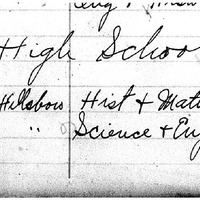 High Schoo
Hillsboro Hist & Math
" Science & Eng